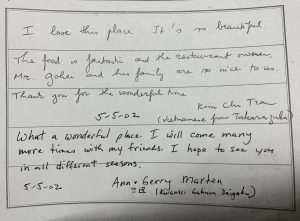 I love this place. It's so beautiful
The food is fantastic and the restaurant owner,
Mr. Gohei and his family are so nice to us.
Thank you for the wonderful time
Kim Chi Tran
5-5-02
(Vietnamese from Takarazuka)
What a wonderful place. I will come many
more times with my friends. I hope to see you
in all different seasons.
5-5-02 Ann & Gerry Marten
(Kwansei Gakuin Daigaku)